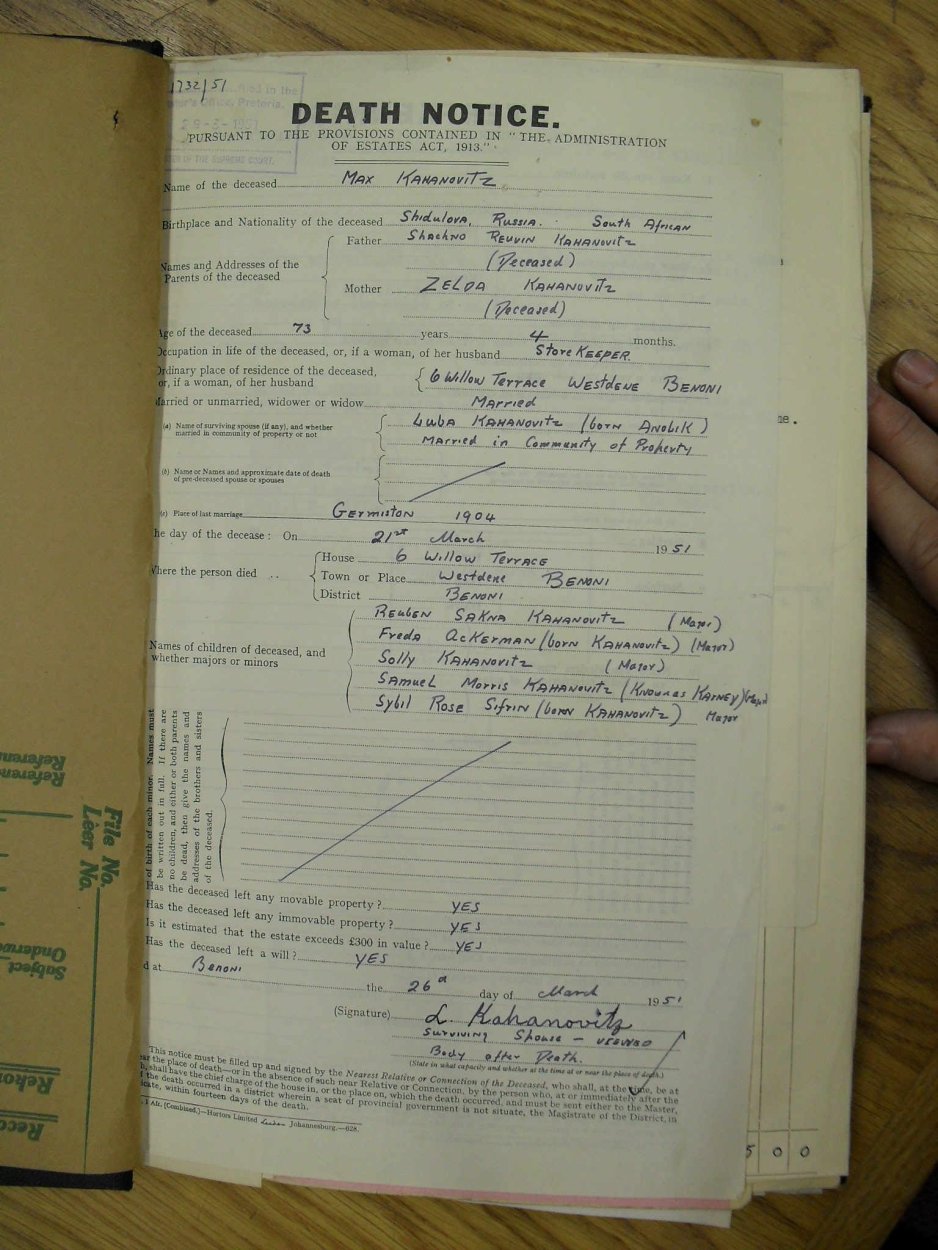 1732/51
filed in the
Office, Pretoria.
29-3-1951
OF THE SUPREME COURT.
DEATH NOTICE.
PURSUANT TO THE PROVISIONS CONTAINED IN "THE ADMINISTRATION
OF ESTATES ACT, 1913."
Name of the deceased MAX KAHANOVITZ
Birthplace and Nationality of the deceased Shidulova, Russia. South African
Names and Addresses of the Parents of the deceased
Father Shachno Reuvin KAHANOVITZ
(Deceased)
Mother ZELDA KAHANOVITZ
(Deceased)
Age of the deceased 73 years 4 months.
Occupation in life of the deceased, or, if a woman, of her husband StoreKEEPER.
Ordinary place of residence of the deceased,
or, if a woman, of her husband 6 Willow Terrace Westdene BENONI
Married or unmarried, widower or widow Married
(a) Name of surviving spouse (if any), and whether Luba KAHANOVITZ (born Anolik)
married in community of property or not Married in Community of Property
(b) Name or Names and approximate date of death
of pre-deceased spouse or spouses
(c) Place of last marriage Germiston 1904
The day of the decease: On 21st March 1951
Where the person died .. House 6 Willow Terrace
Town or Place Westdene BENONI
District BENONI
Names of children of deceased, and
whether majors or minors
Reuben SAKNA KAHANOVITZ (Major)
Freda AcKERMAN (born KAHANOVITZ) (Major)
Solly KAHANOVITZ (Major)
SAMUEL Morris KAHANOVITZ (Known as KARNEY) (Major)
Sybil Rose Sifrin (born KAHANOVITZ) Major
of birth of each minor. Names must
be written out in full. If there are
no children, and either or both parents
be dead, then give the names and
addresses of the brothers and sisters
of the deceased.
Has the deceased left any movable property? YES
Has the deceased left any immovable property? YES
Is it estimated that the estate exceeds £300 in value? YES
Has the deceased left a will? YES
d at Benoni the 26th day of March 1951
(Signature) L. Kahanovitz
Surviving Spouse – viewed
Body after Death.
(State in what capacity and whether at the time at or near the place of death.)
This notice must be filled up and signed by the Nearest Relative or Connection of the Deceased, who shall, at the time, be at
near the place of death—or in the absence of such near Relative or Connection, by the person who, at or immediately after the
shall have the chief charge of the house in, or the place on, which the death occurred, and must be sent either to the Master,
if the death occurred in a district wherein a seat of provincial government is not situate, the Magistrate of the District, in
cate, within fourteen days of the death.
(Combined.)—Hortors Limited Johannesburg.—628.
File No.
Leer No.
Referen
Referen
Subject
Onderwe
Reko
Reco
ne.
5 0 0